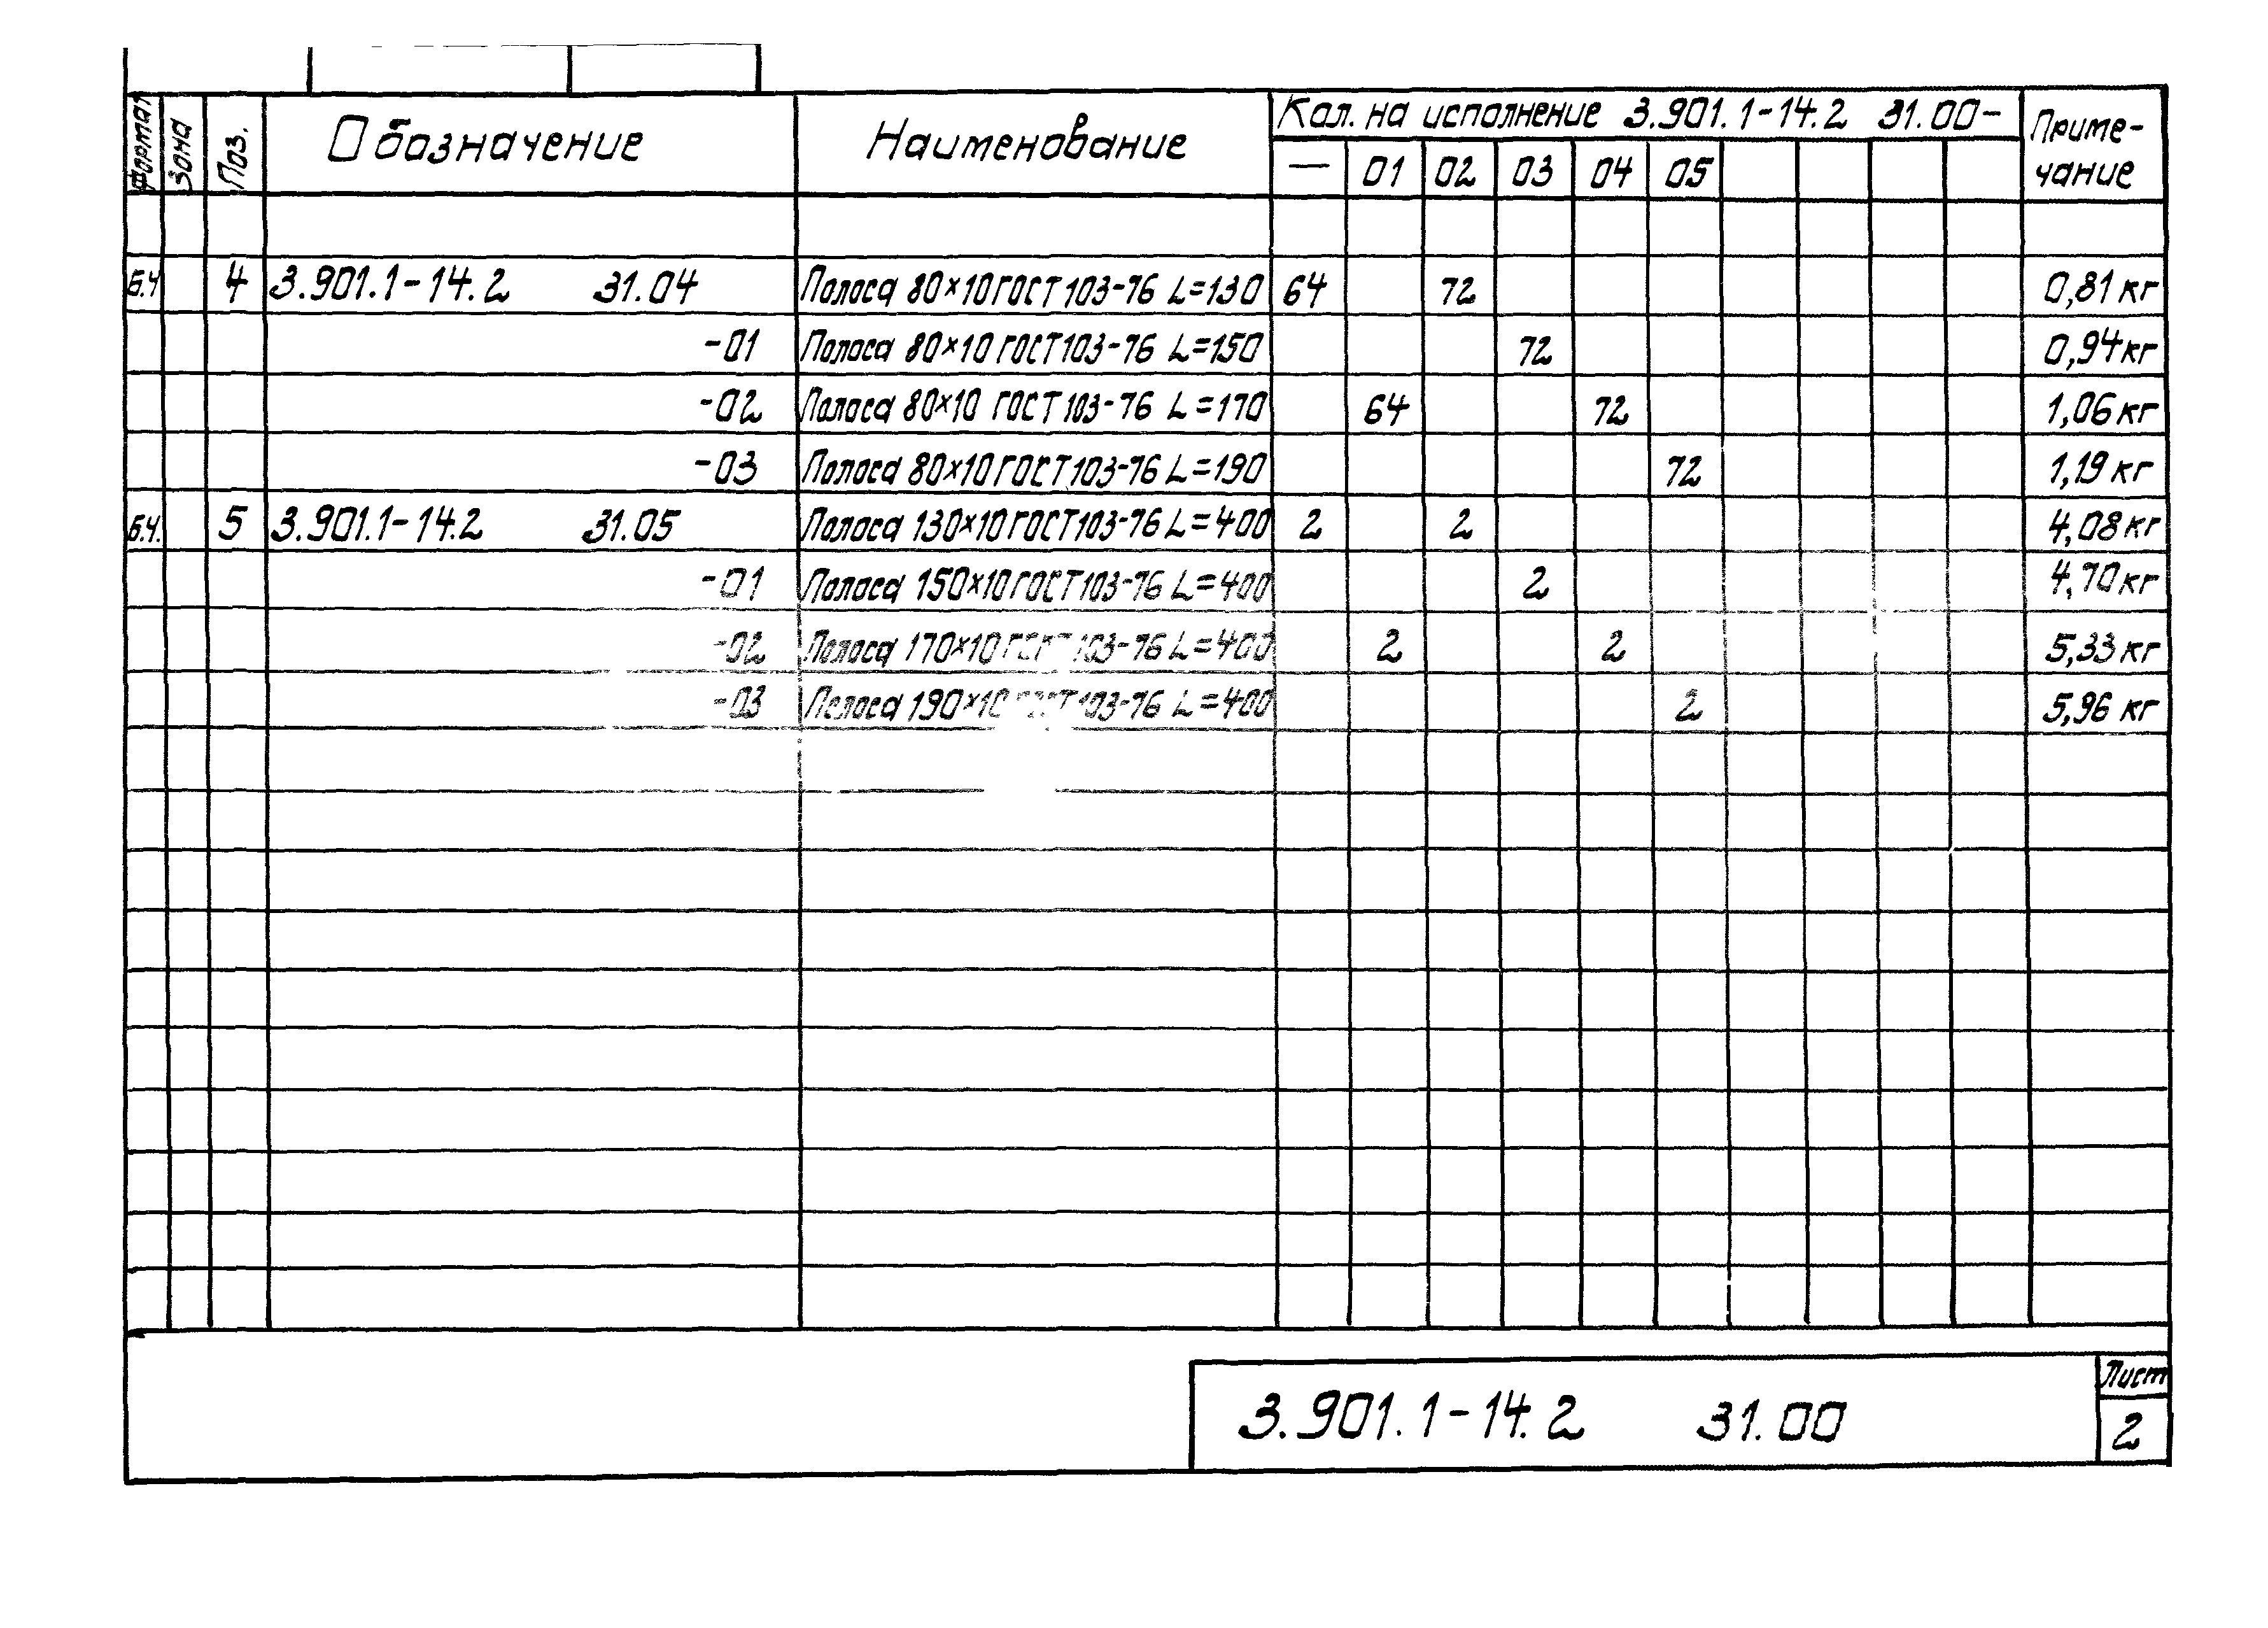 Формат Зона Поз. Обозначение Наименование Кол. на исполнение 3.901.1-14.2 31.00- Приме-
чание
— 01 02 03 04 05
Б.Ч 4 3.901.1-14.2 31.04 Полоса 80×10 ГОСТ 103-76 L=130 64 72 0,81 кг
-01 Полоса 80×10 ГОСТ 103-76 L=150 72 0,94 кг
-02 Полоса 80×10 ГОСТ 103-76 L=170 64 72 1,06 кг
-03 Полоса 80×10 ГОСТ 103-76 L=190 72 1,19 кг
Б.Ч. 5 3.901.1-14.2 31.05 Полоса 130×10 ГОСТ 103-76 L=400 2 2 4,08 кг
-01 Полоса 150×10 ГОСТ 103-76 L=400 2 4,70 кг
-02 Полоса 170×10 ГОСТ 103-76 L=400 2 2 5,33 кг
-03 Полоса 190×10 ГОСТ 103-76 L=400 2 5,96 кг
3.901.1-14.2 31.00
Лист
2